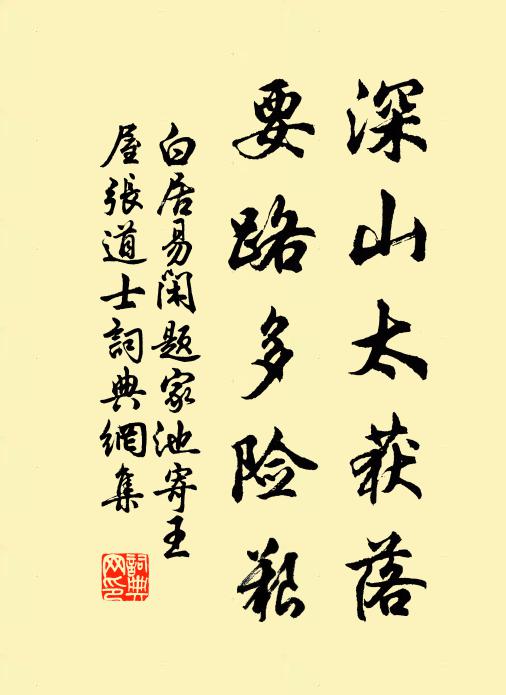 深山太获落
要路多险艱
白居易闲题家池寄王
屋張道士詞典網集
詞典
网印